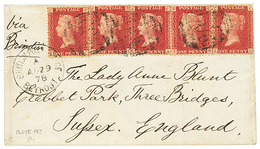 via
Brindisi
ONE PENNY ONE PENNY ONE PENNY ONE PENNY ONE PENNY
AU 29
78
BEYROUT
The Lady Anne Blunt
Crabbet Park, Three Bridges,
Sussex. England.
PLATE 187